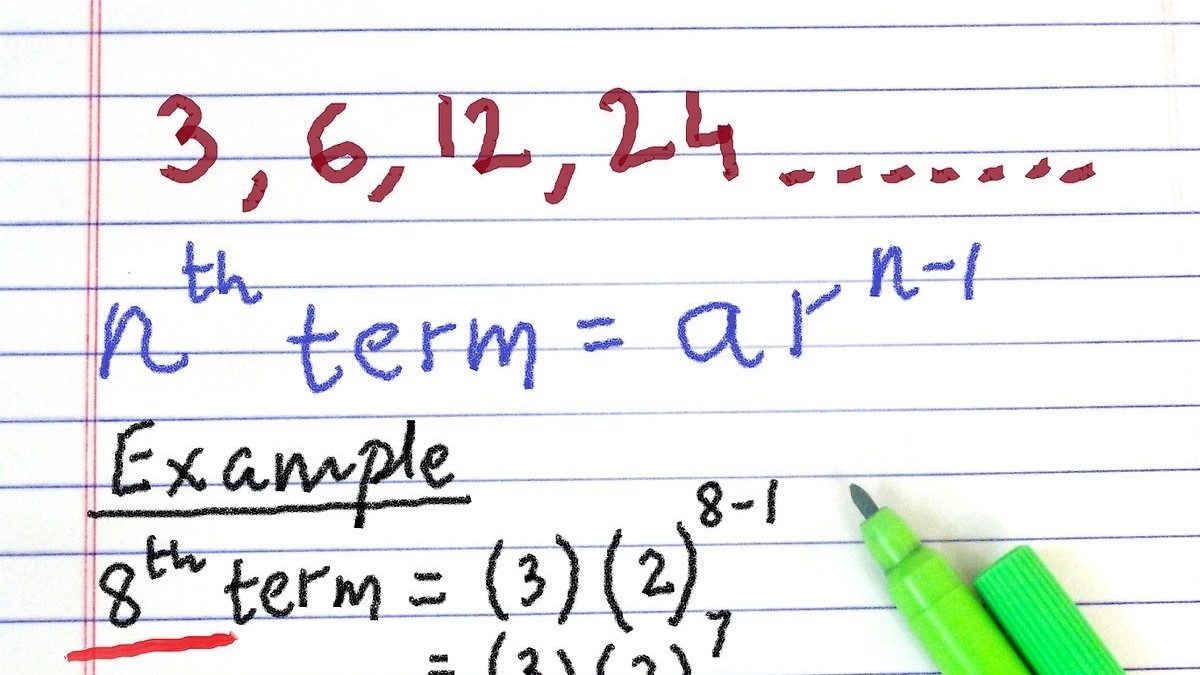 3, 6, 12, 24 .......
nᵗʰ term = arⁿ⁻¹
Example
8ᵗʰ term = (3)(2)⁸⁻¹
= (3)(2)⁷